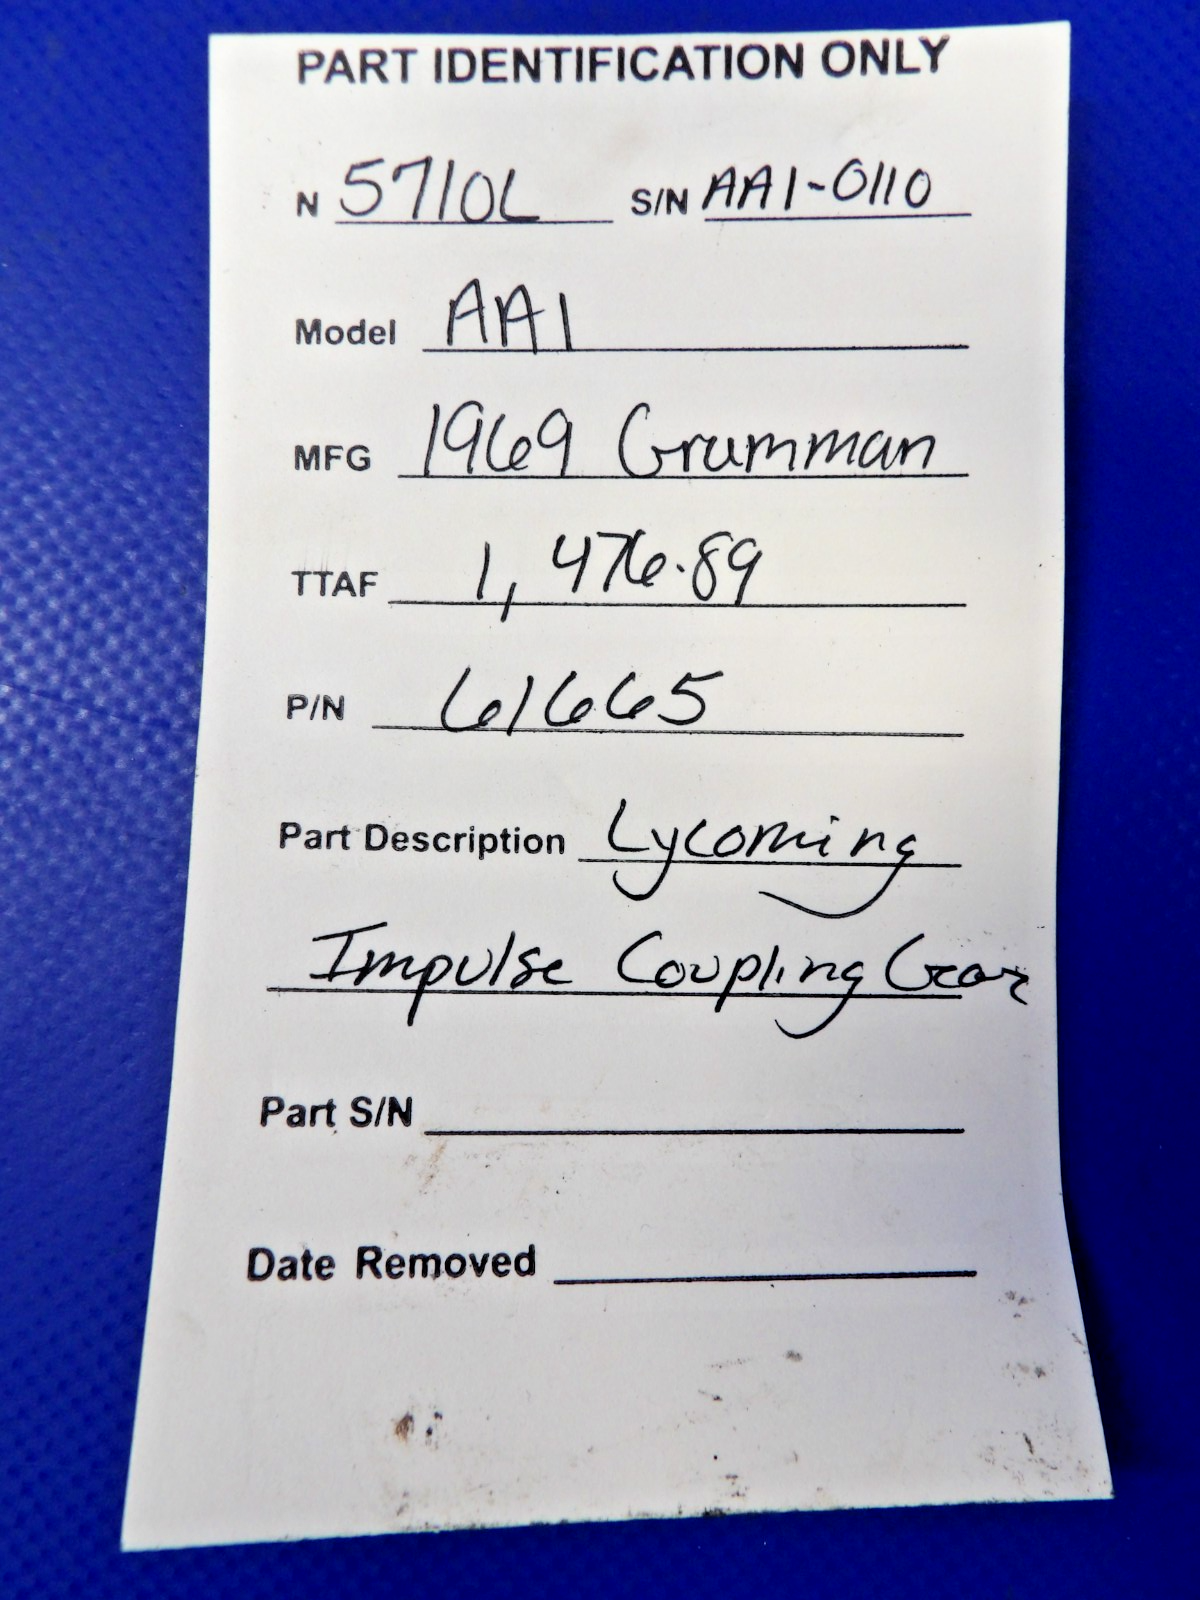 PART IDENTIFICATION ONLY
N 5710L S/N AA1-0110
Model AA1
MFG 1969 Grumman
TTAF 1,476.89
P/N 61665
Part Description Lycoming
Impulse Coupling Gear
Part S/N
Date Removed